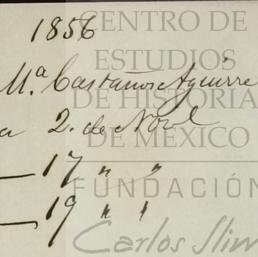 1856
CENTRO DE
ESTUDIOS
Mª Castaños Aguirre
DE HISTORIA
2. de Novl
DE MÉXICO
— 17 " "
FUNDACIÓN
— 19 " "
Carlos Slim